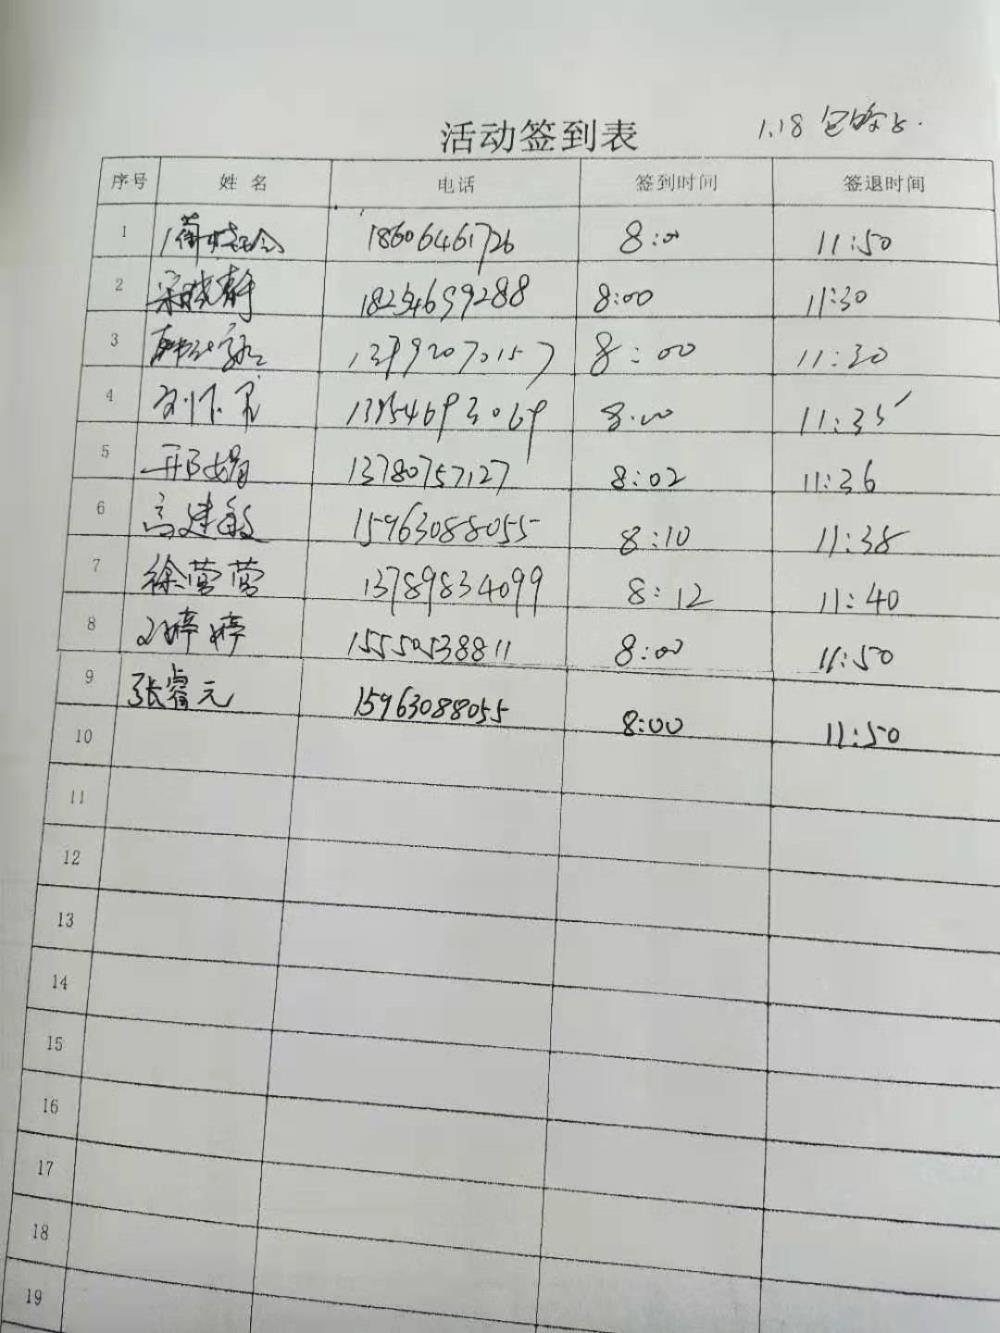 活动签到表 1.18
序号 姓名 电话 签到时间 签退时间
1 18606461726 8:00 11:50
2 宋晓静 18254699288 8:00 11:30
3 13792070157 8:00 11:30
4 8:00 11:35
5 邢娟 13780757127 8:02 11:36
6 高建敏 15963088055 8:10 11:38
7 徐莺莺 13789834099 8:12 11:40
8 婷婷 15550538811 8:00 11:50
9 张睿元 15963088055 8:00 11:50
10
11
12
13
14
15
16
17
18
19